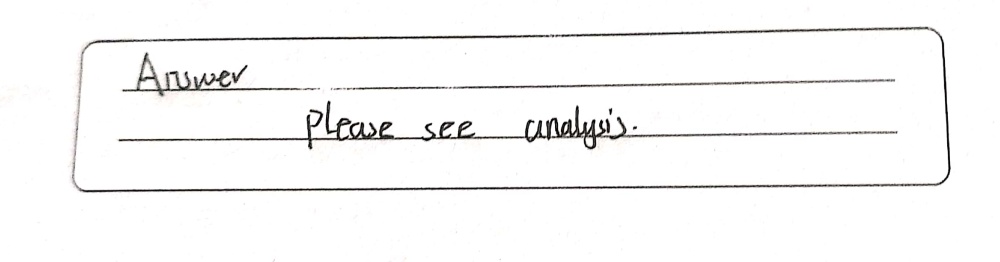 Answer
please see analysis.